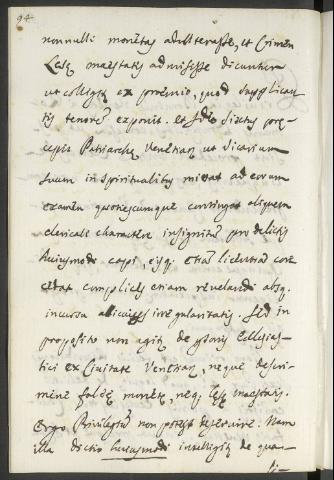 94.
nonnulli monetas adulterasse, et Crimen
Lesę maestatis admisisse dicuntur
ut colligit ex proemio, quod supplican
tis tenorẽ exponit. et Ideo dictus prę-
cepit Patriarchę Venetiarũ ut Vicarium
suum in spiritualibus mittat ad eorum
examen quotiescumque contingat aliquem
clericali charactere insignitũ pro delictis
huiusmodi capi, eisq. etiã licentiã con
cedat complices etiam revelandi absq.
incursu alicuius irregularitatis. sed in
proposito non agitũ de ystoris Ecclesias-
tici ex Civitate Venetiarũ, neque de cri-
mine falsę monetę, neq. lęsę maestatis.
Ergo Privilegiũ non potest deservire. Nam
illa dictio huiusmodi intelligit de qua-
li-